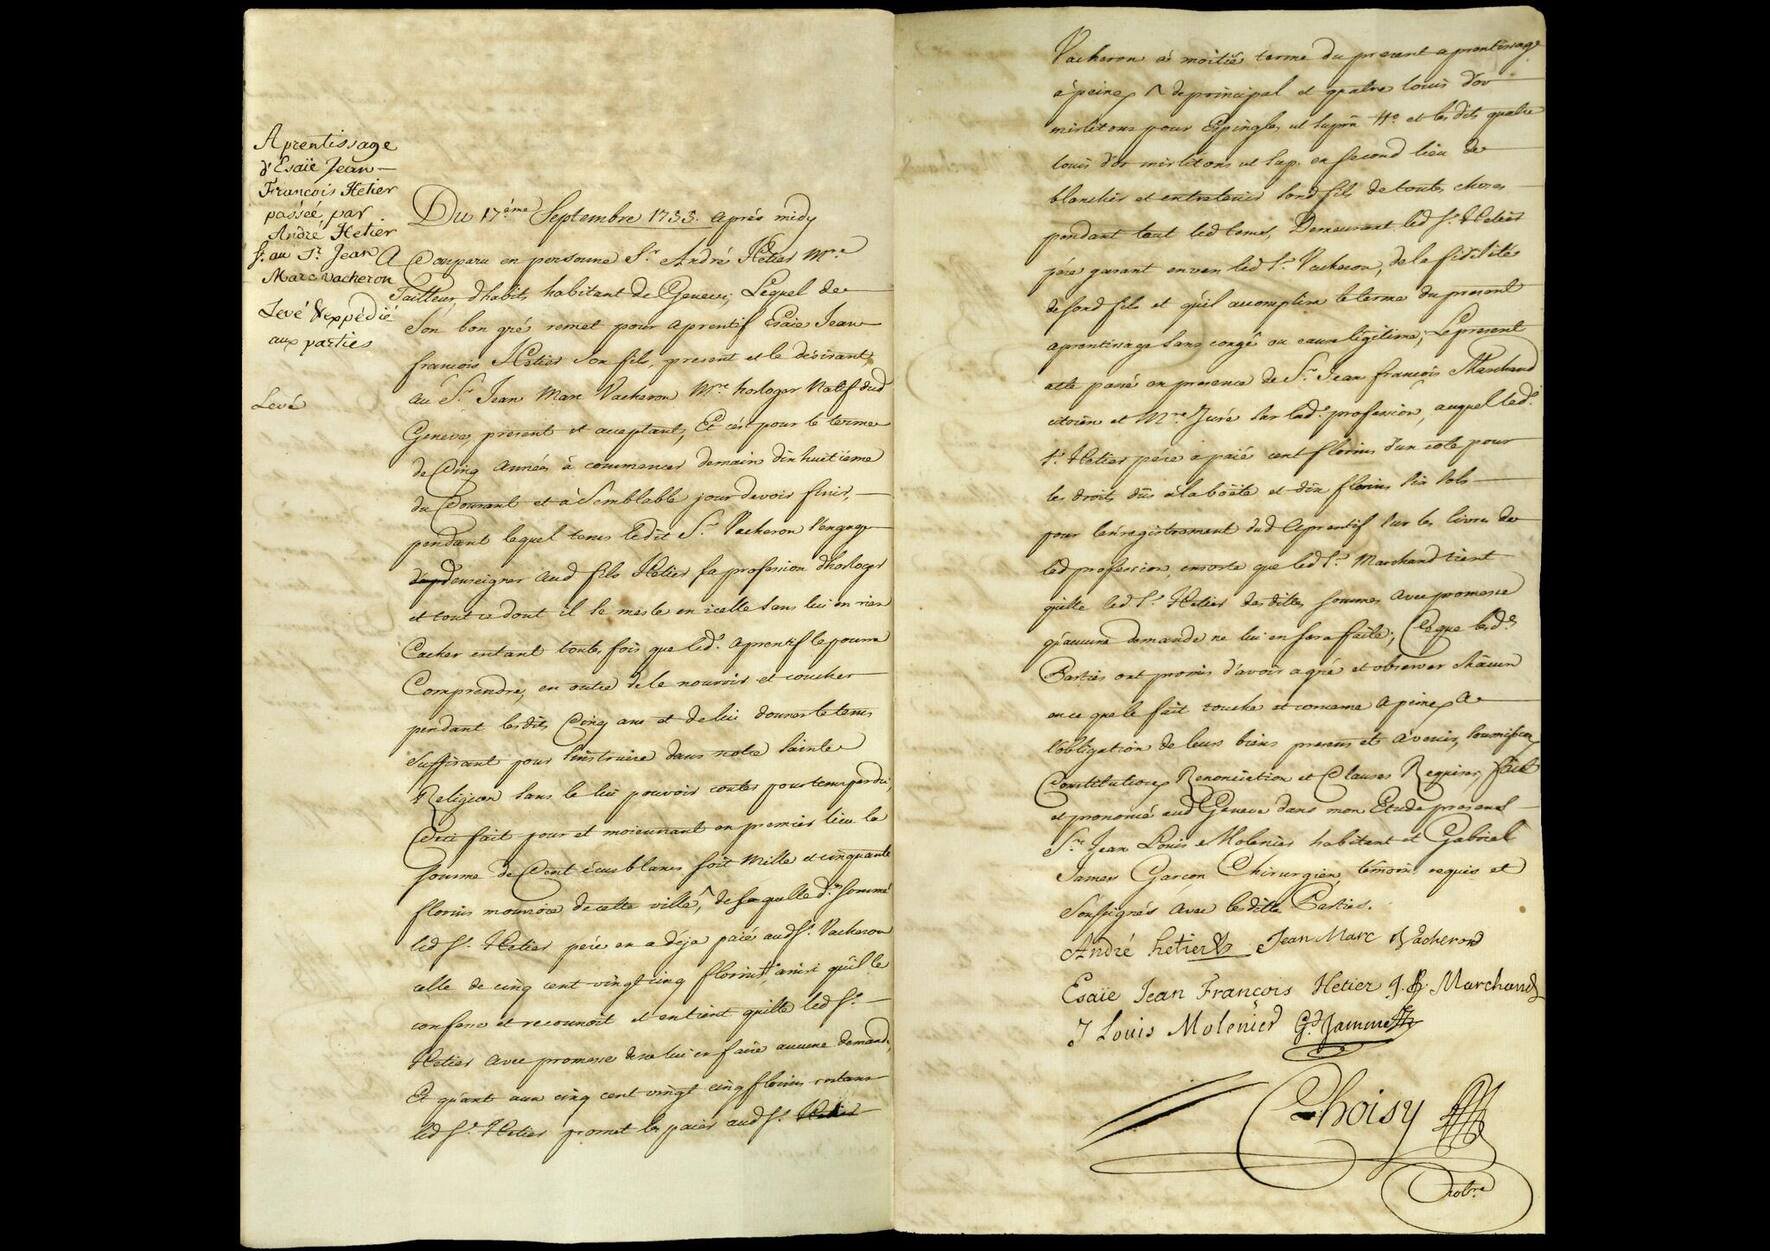 Aprentissage
d'Esaïe Jean
François Hetier
passée, par
André Hetier
au Sr. Jean
Marc Vacheron
Levé & expédié
aux parties
Levé
Du 17ème Septembre 1733. aprés midy
A Comparu en personne Sr. André Hetier Mre.
Tailleur d'habits habitant de Geneve, Lequel de
son bon gré remet pour aprentif Esaie Jean
francois Hetier son fils, present et le desirant,
au Sr. Jean Marc Vacheron Mre horloger Natif dud
Geneve, present et acceptant, Et c'est pour le terme
de Cinq Années à commencer demain dix huitiéme
du Courant et à semblable jour devoir finir,
pendant lequel tems ledit Sr. Vacheron s'engage
d'enseigner aud fils Hetier sa profession d'horloger
et tout ce dont il se mesle en icelle sans lui en rien
Cacher entant toutes fois que led. aprentif le pourra
Comprendre, en outre de le nourrir et coucher
pendant lesdits Cinq ans et de lui donner le tems
suffisant pour s'instruire dans notre sainte
Religion sans le lui pouvoir conter pour tems perdu,
Ceci fait pour et moienant en premier lieu la
somme de Cent écus blancs soit Mille et cinquante
florins monnoie de cette ville, de laquelle de. somme
led Sr. Hetier pére en a déja paié aud Sr. Vacheron
celle de cinq cent vingt cinq florins ainsi qu'il le
confesse et reconnoit et en tient quitte led Sr.
Hetier avec promesse de ne lui en faire aucune demande,
Et quant aux cinq cent vingt cinq florins restans
led Sr. Hetier promet les paier aud Sr.
Vacheron à moitié terme du present aprentissage
à peine de principal et quatre louis d'or
mirlitons pour Epingles ut supra et lesdits quatre
louis d'or mirlitons ut sup. en second lieu de
blanchir et entretenir sond fils de toutes choses
pendant tout led tems, Demeurant led Sr. Hetier
pére garant envers led Sr. Vacheron, de la fidelité
de sond fils et qu'il accomplira le terme du present
aprentissage sans congé ou cause légitime; Le present
acte passé en presence de Sr. Jean François Marchand
citoien et Mre Juré sur lade. profession, auquel led.
Sr. Hetier pére a paié cent florins d'un coté pour
les droits dûs à la boëte et dix florins six sols
pour l'enregistrement dud Aprentif sur les livres de
lad profession, ensorte que led Sr. Marchand tient
quitte led Sr. Hetier desdites sommes avec promesse
qu'aucune demande ne lui en sera faite; Ce que lesd.
Parties ont promis d'avoir agré et observer chacun
en ce que le fait touche et concerne à peine
l'obligation de leurs biens presens et à venir, soumissions
Constitutions Renonciation et Clauses Requises, fait
et prononcé aud Geneve dans mon Etude présens
Sr. Jean Louis Molenier habitant et Gabriel
James Garçon Chirurgien, témoins requis et
soussignés avec lesdites Parties.
André hetier Jean Marc Vacheron
Esaïe Jean François Hetier J. F. Marchand
J Louis Molenier Gd Jammes
Choisy
Notre